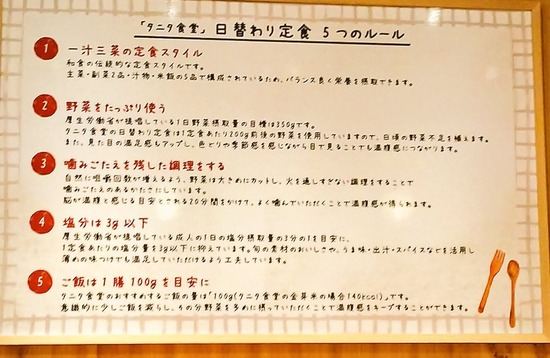 「タニタ食堂」日替わり定食 5つのルール
1 一汁三菜の定食スタイル
和食の伝統的な定食スタイルです。
主菜・副菜2品・汁物・米飯の5品で構成されているため、バランス良く栄養を摂取できます。
2 野菜をたっぷり使う
厚生労働省が提唱している1日野菜摂取量の目標は350gです。
タニタ食堂の日替わり定食は1定食あたり200g前後の野菜を使用していますので、日頃の野菜不足を補えます。
また、見た目の満足感もアップし、色どりや季節感を感じながら目で見ることでも満腹感につながります。
3 噛みごたえを残した調理をする
自然に咀嚼回数が増えるよう、野菜は大きめにカットし、火を通しすぎない調理をすることで
噛みごたえのあるかたさにしています。
脳が満腹と感じる目安とされる20分間をかけて、よく噛んでいただくことで満腹感が得られます。
4 塩分は3g以下
厚生労働省が提唱している成人の1日の塩分摂取量の3分の1を目安に、
1定食あたりの塩分量を3g以下に抑えています。旬の素材のおいしさや、うま味・出汁・スパイスなどを活用し
薄めの味つけでも満足していただけるよう工夫しています。
5 ご飯は1膳100gを目安に
タニタ食堂のおすすめするご飯の量は「100g(タニタ食堂の金芽米の場合140kcal)」です。
意識的に少しご飯を減らし、その分野菜を多めに摂っていただくことで満腹感をキープすることができます。